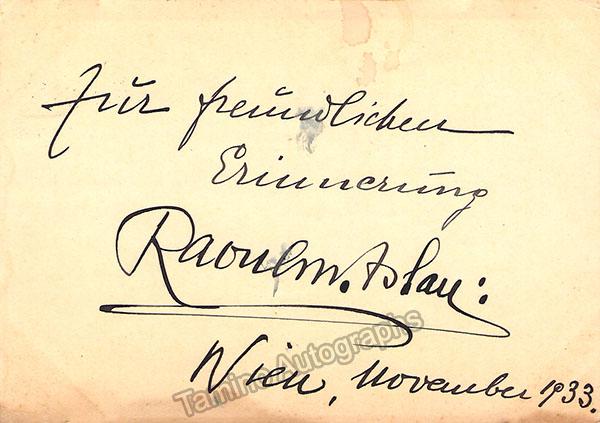 Zur freundlichen
Erinnerung
Raoul m. Aslan:
Wien, November 1933.
Tamino Autographs